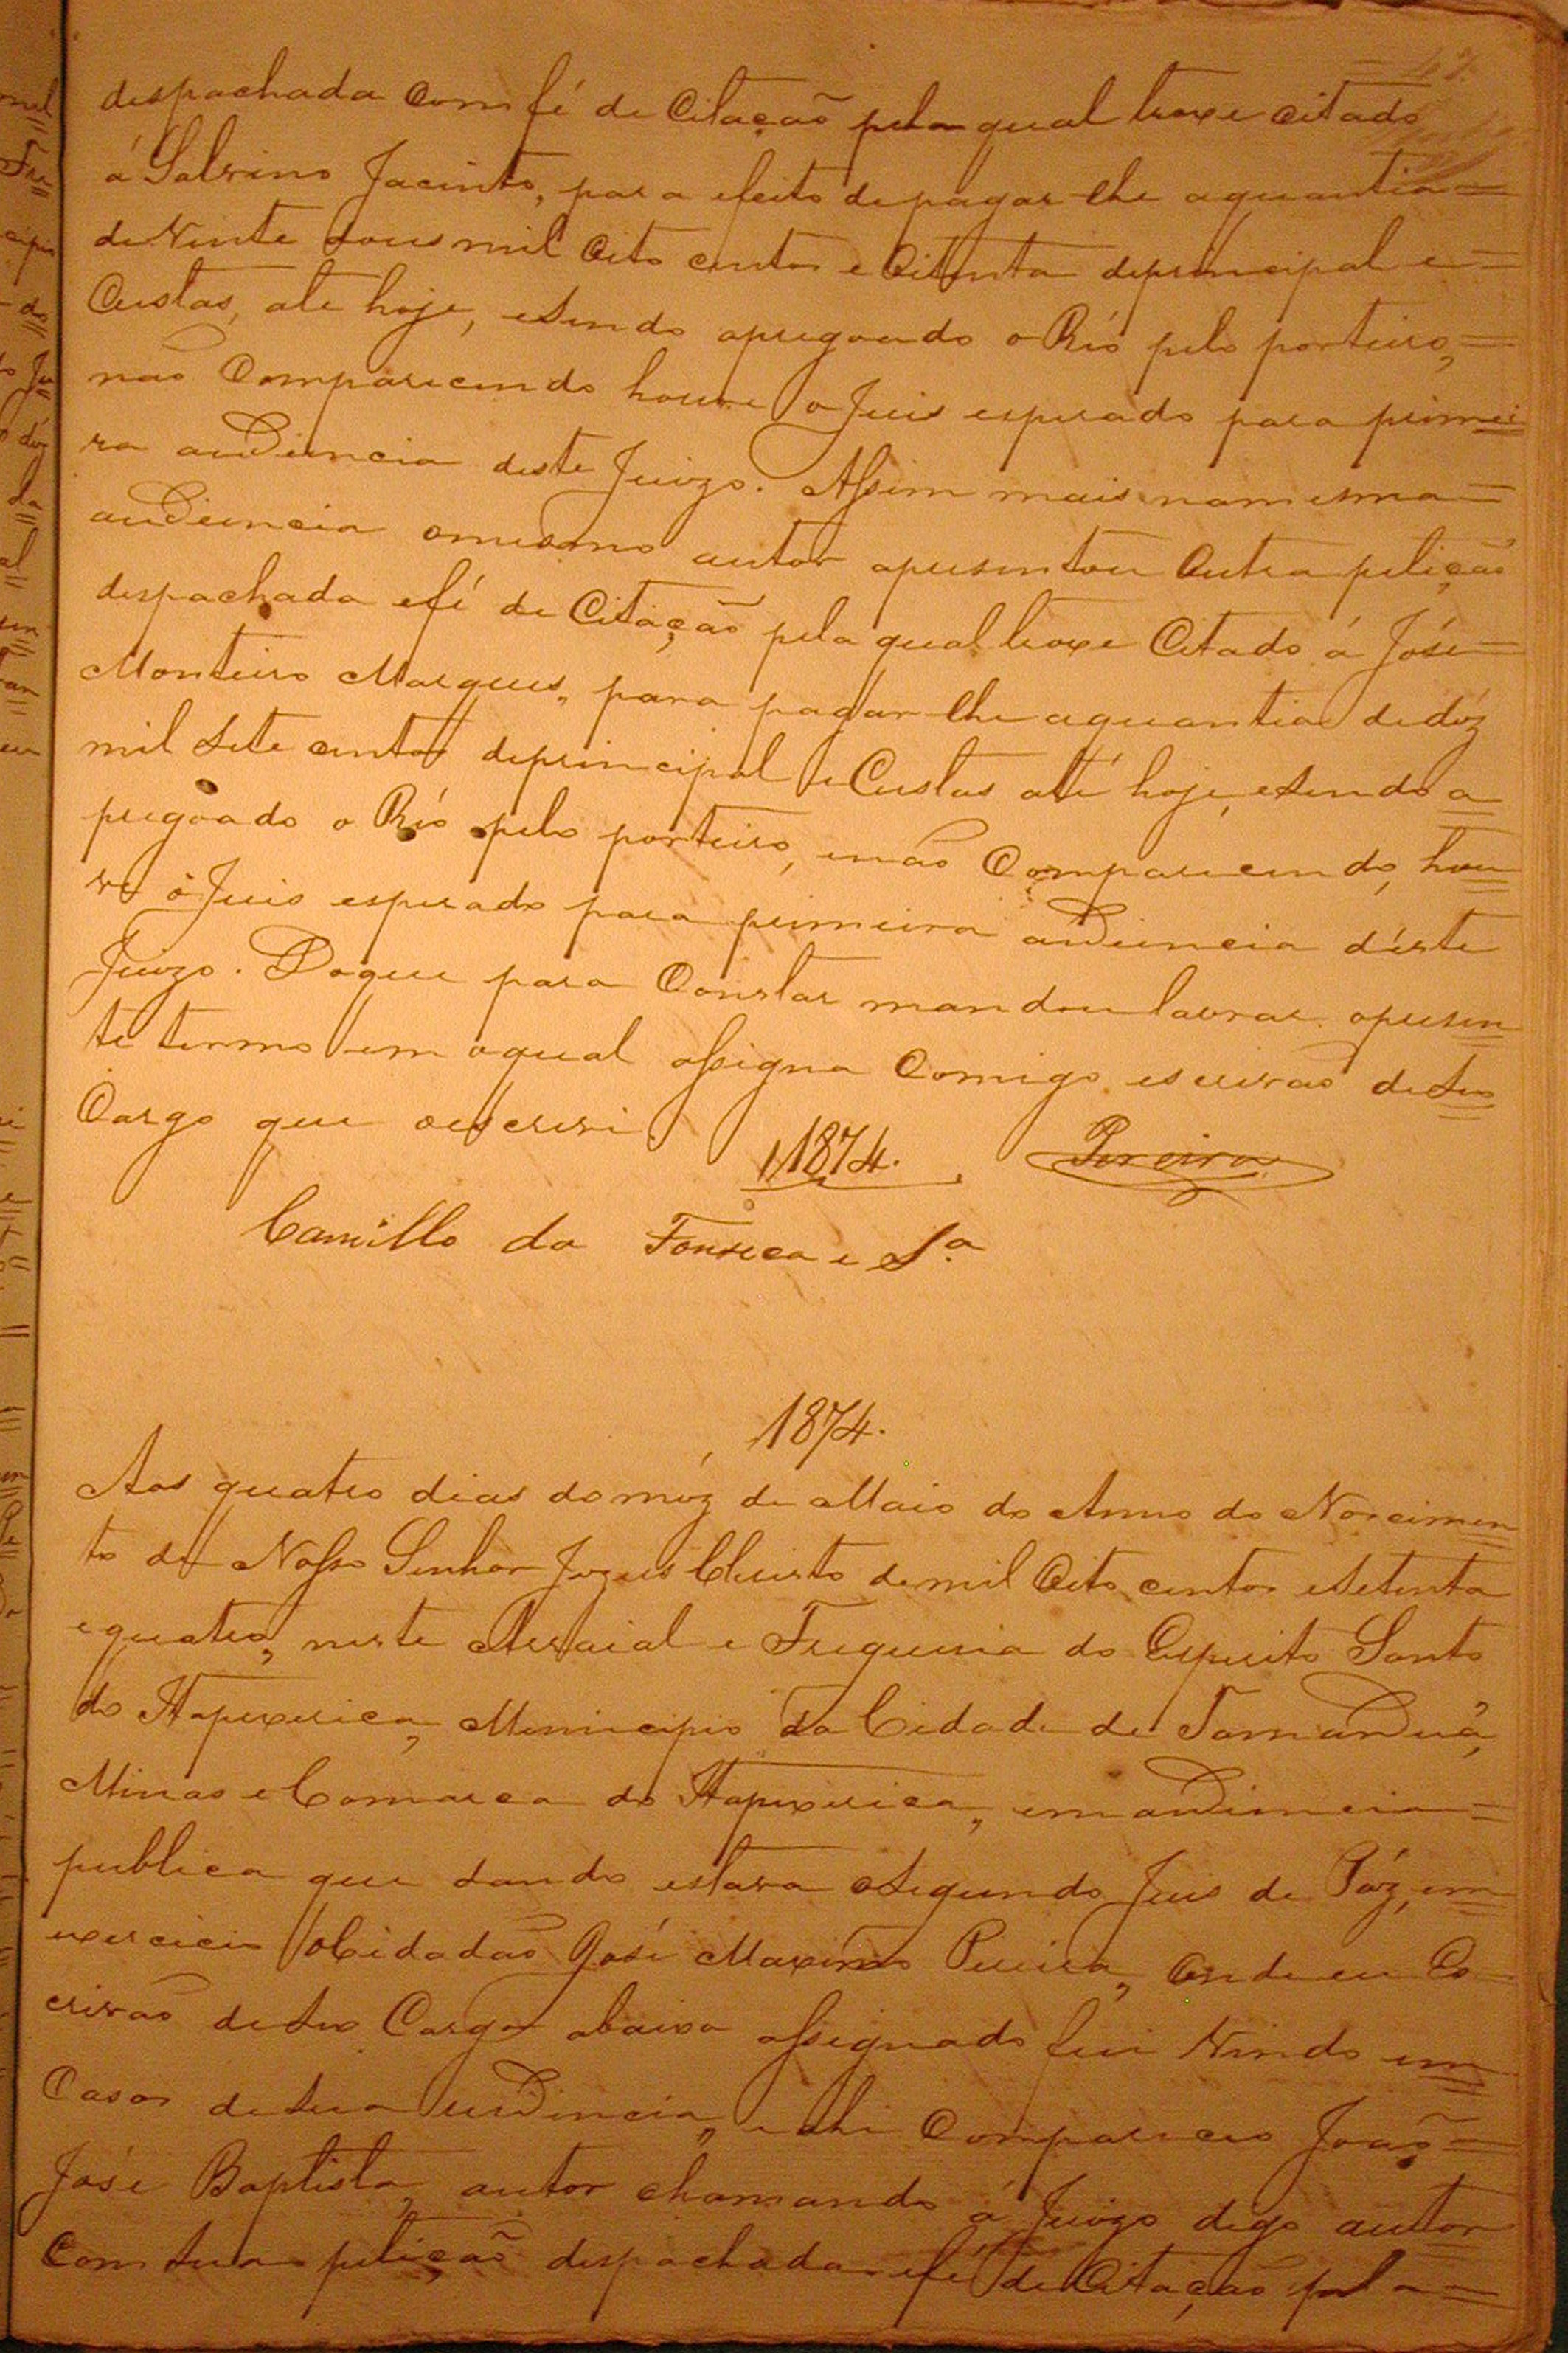 despachada com fé de Citação pela qual trove citado
á Salvino Jacinto, para efeito de pagar-lhe a quantia=
de Vinte dous mil Oito centos e Oitenta de principal e=
Custas, ate hoje, e sendo apregoado o Réo pelo porteiro,=
não Comparecendo houve o Juis esperado para primei
ra audiencia deste Juizo. Assim mais na mesma=
audiencia o mesmo autor apresentou Outra petição
despachada e fé de Citação pela qual trove Citado á José=
Monteiro Marques, para pagar-lhe a quantia de déz
mil sete centos de principal e Custas até hoje, e sendo a
pregoado o Réo pelo porteiro, e não Comparecendo, hou
ve o Juis esperado para primeira audiencia déste
Juizo. Do que para Constar mandou lavrar o presen
te termo em o qual assigna Comigo escrivão de seu
Cargo que o escrevi.
1874. Pereira
Camillo da Fonseca e S.a
1874.
Aos quatro dias do méz de Maio do Anno do Nascimen
to de Nosso Senhor Jezus Christo de mil Oito centos e setenta
e quatro, neste Arraial e Freguesia do Esperito Santo
do Itapexerica, Municipio da Cidade de Tamanduá,
Minas e Comarca do Itapexerica, em audiencia=
publica que dando estava o Segundo Juis de Páz, em
exercicio o Cidadão José Maximo Pereira, Onde eu Es
crivão de seu Cargo abaixo assignado fui Vindo em
Casas de sua residencia, e ahi Compareceo João=
José Baptista, autor chamando á Juizo digo autor
Com sua petição despachada e fé de Citação pela=